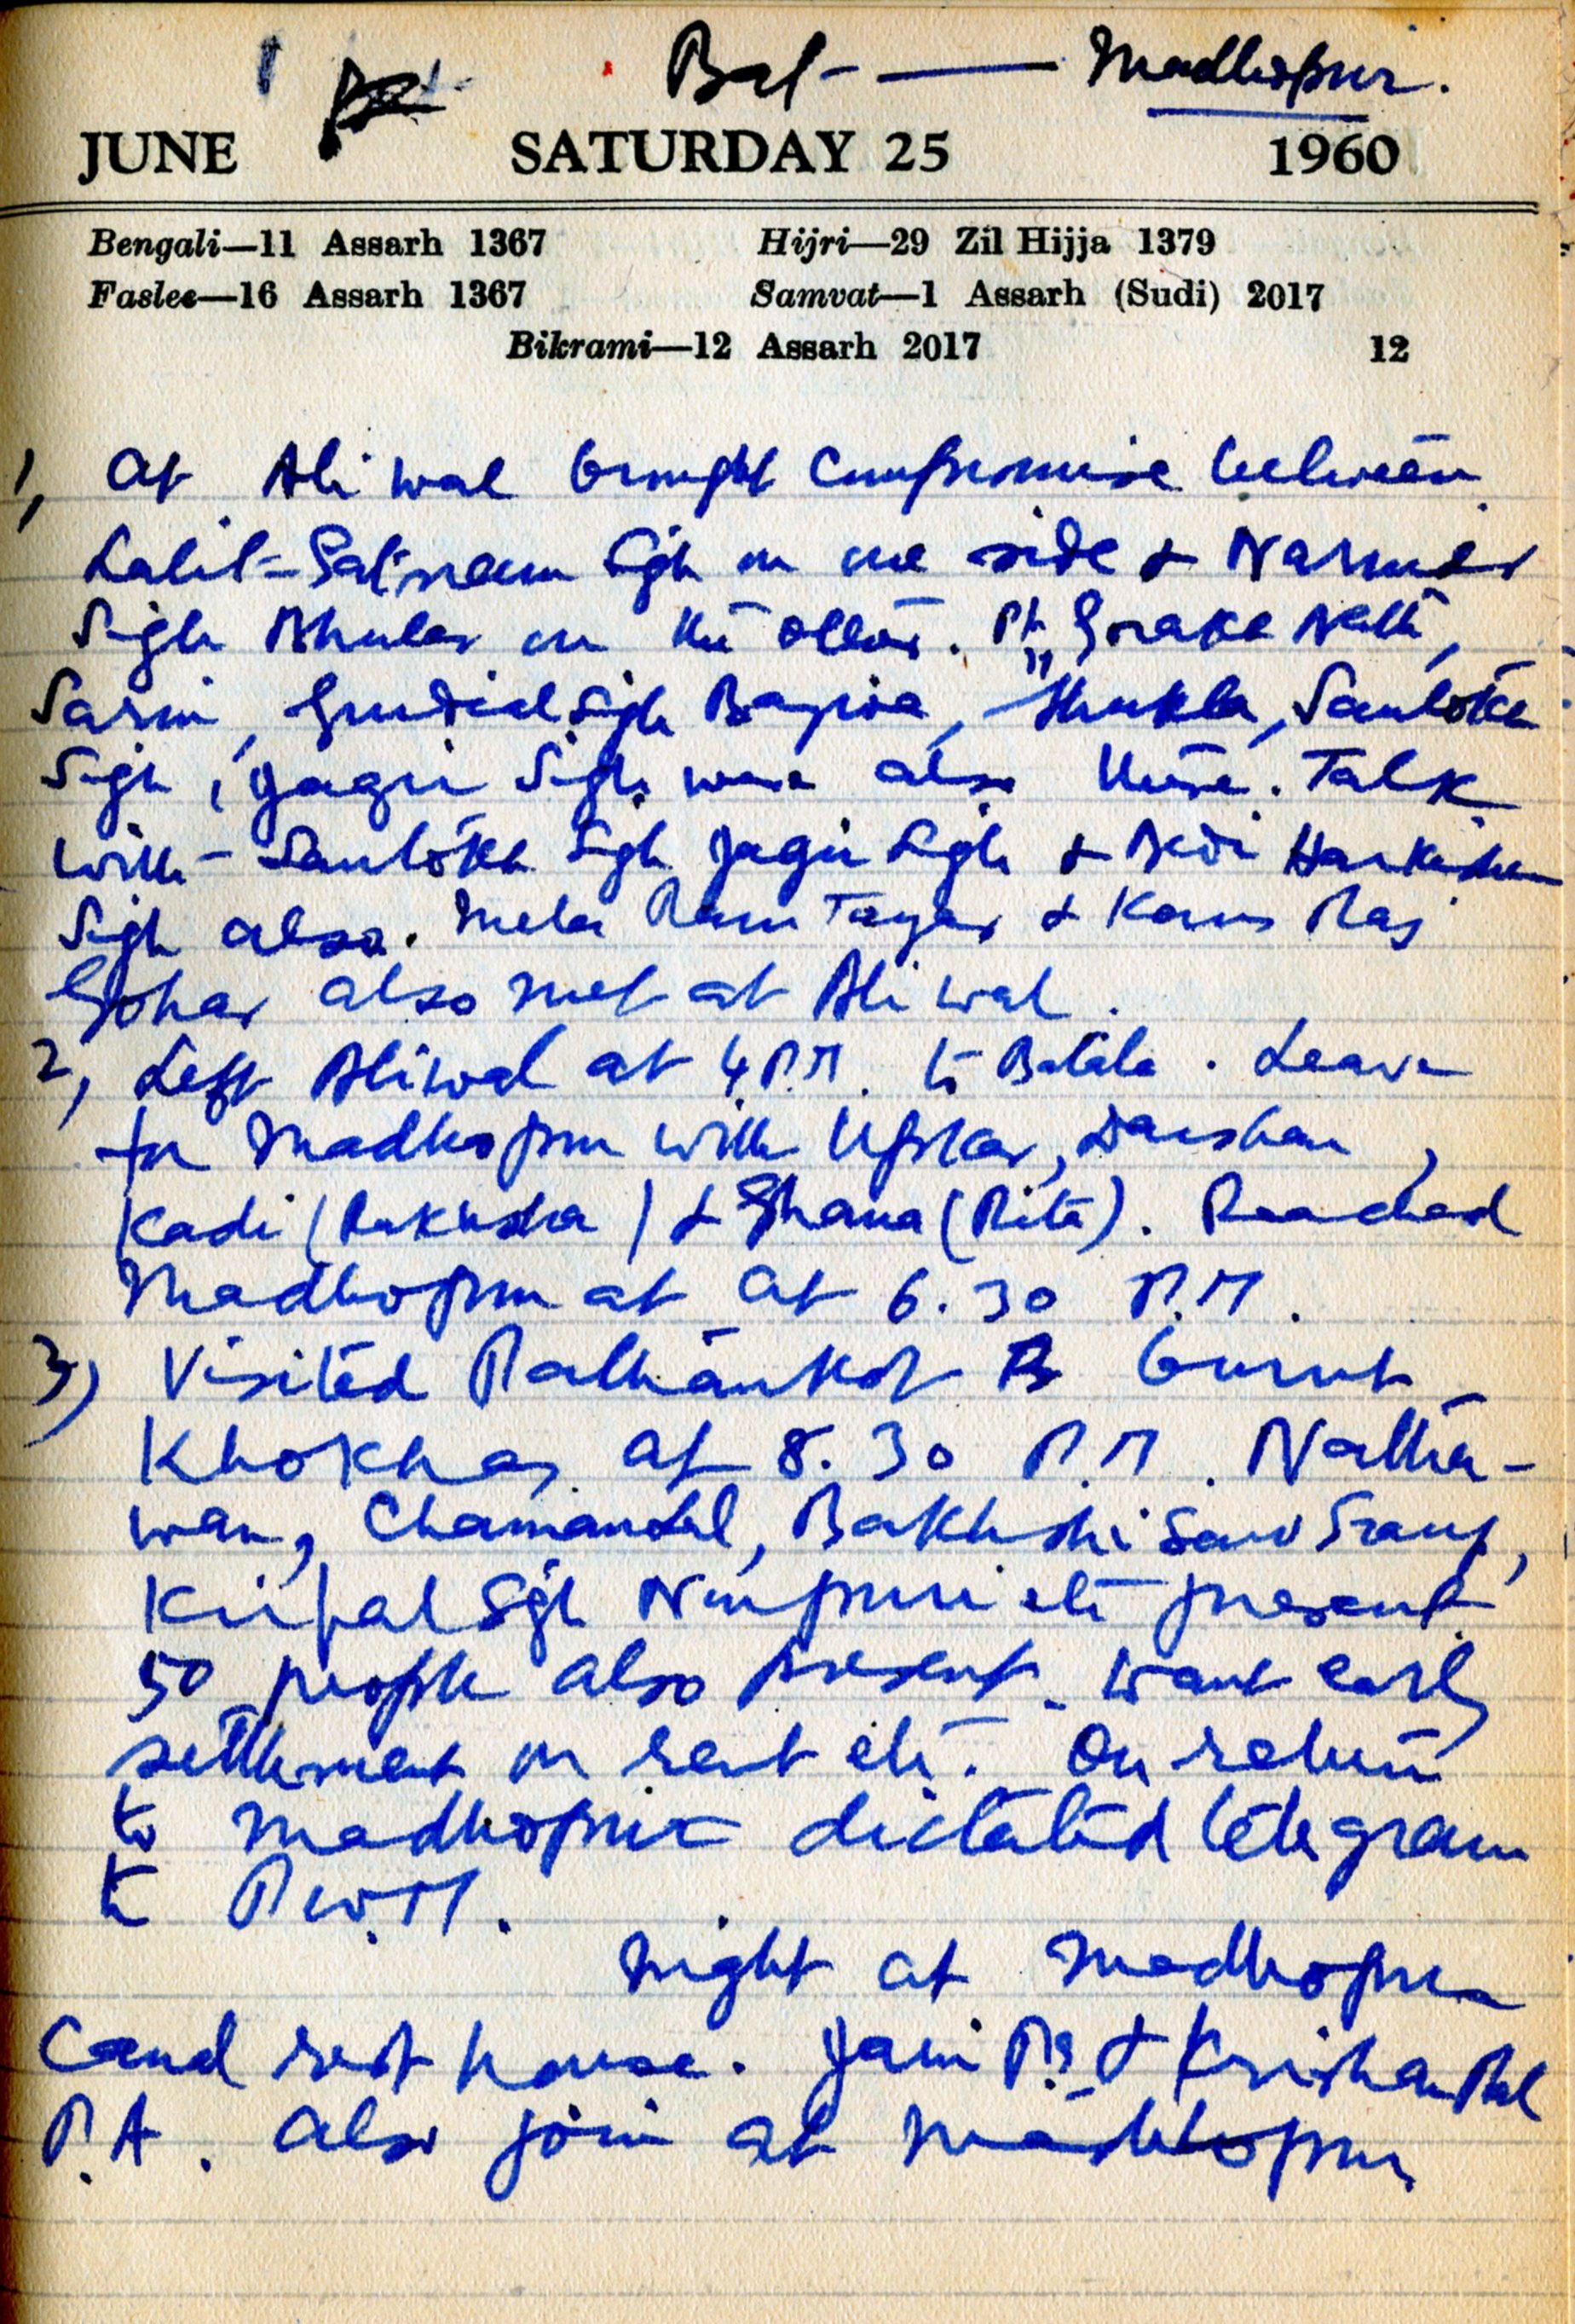 Bat - — Madhopur.
JUNE SATURDAY 25 1960
Bengali—11 Assarh 1367 Hijri—29 Zil Hijja 1379
Faslee—16 Assarh 1367 Samvat—1 Assarh (Sudi) 2017
Bikrami—12 Assarh 2017 12
1, At Aliwal brought compromise between
Lalit - Satnam Sgh on one side & Narinder
Sigh Bhuler on the other. Pt. Gorakh Nath,
Sarin, Gurdial Sigh Bajwa, " Shukla, Santokh
Sigh, Jagir Sigh were also there. Talk
with - Santokh Sigh Jagir Sigh & Bedi Harkishen
Sigh also. Mela Ram Tayar & Kans Raj
Gohar also met at Aliwal.
2, Left Aliwal at 4 P.M. to Batala. Leave
for Madhopur with Upkar, Darshan,
Kadi (Rakhsha) & Ghana (Rita). Reached
Madhopur at at 6.30 P.M.
3) Visited Pathankot burnt
Khokhas at 8.30 P.M. Natha-
wan, Chamanlal, Bakhshi Sant Sraup,
Kirpal Sgh Nurpuri etc present
50 people also present. Want early
settlement on rent etc. On return
to Madhopur dictated telegram
to P.W.M.
Night at Madhopur
Canal rest house. Jain P.S & Krishan Pal
P.A. also join at Madhopur